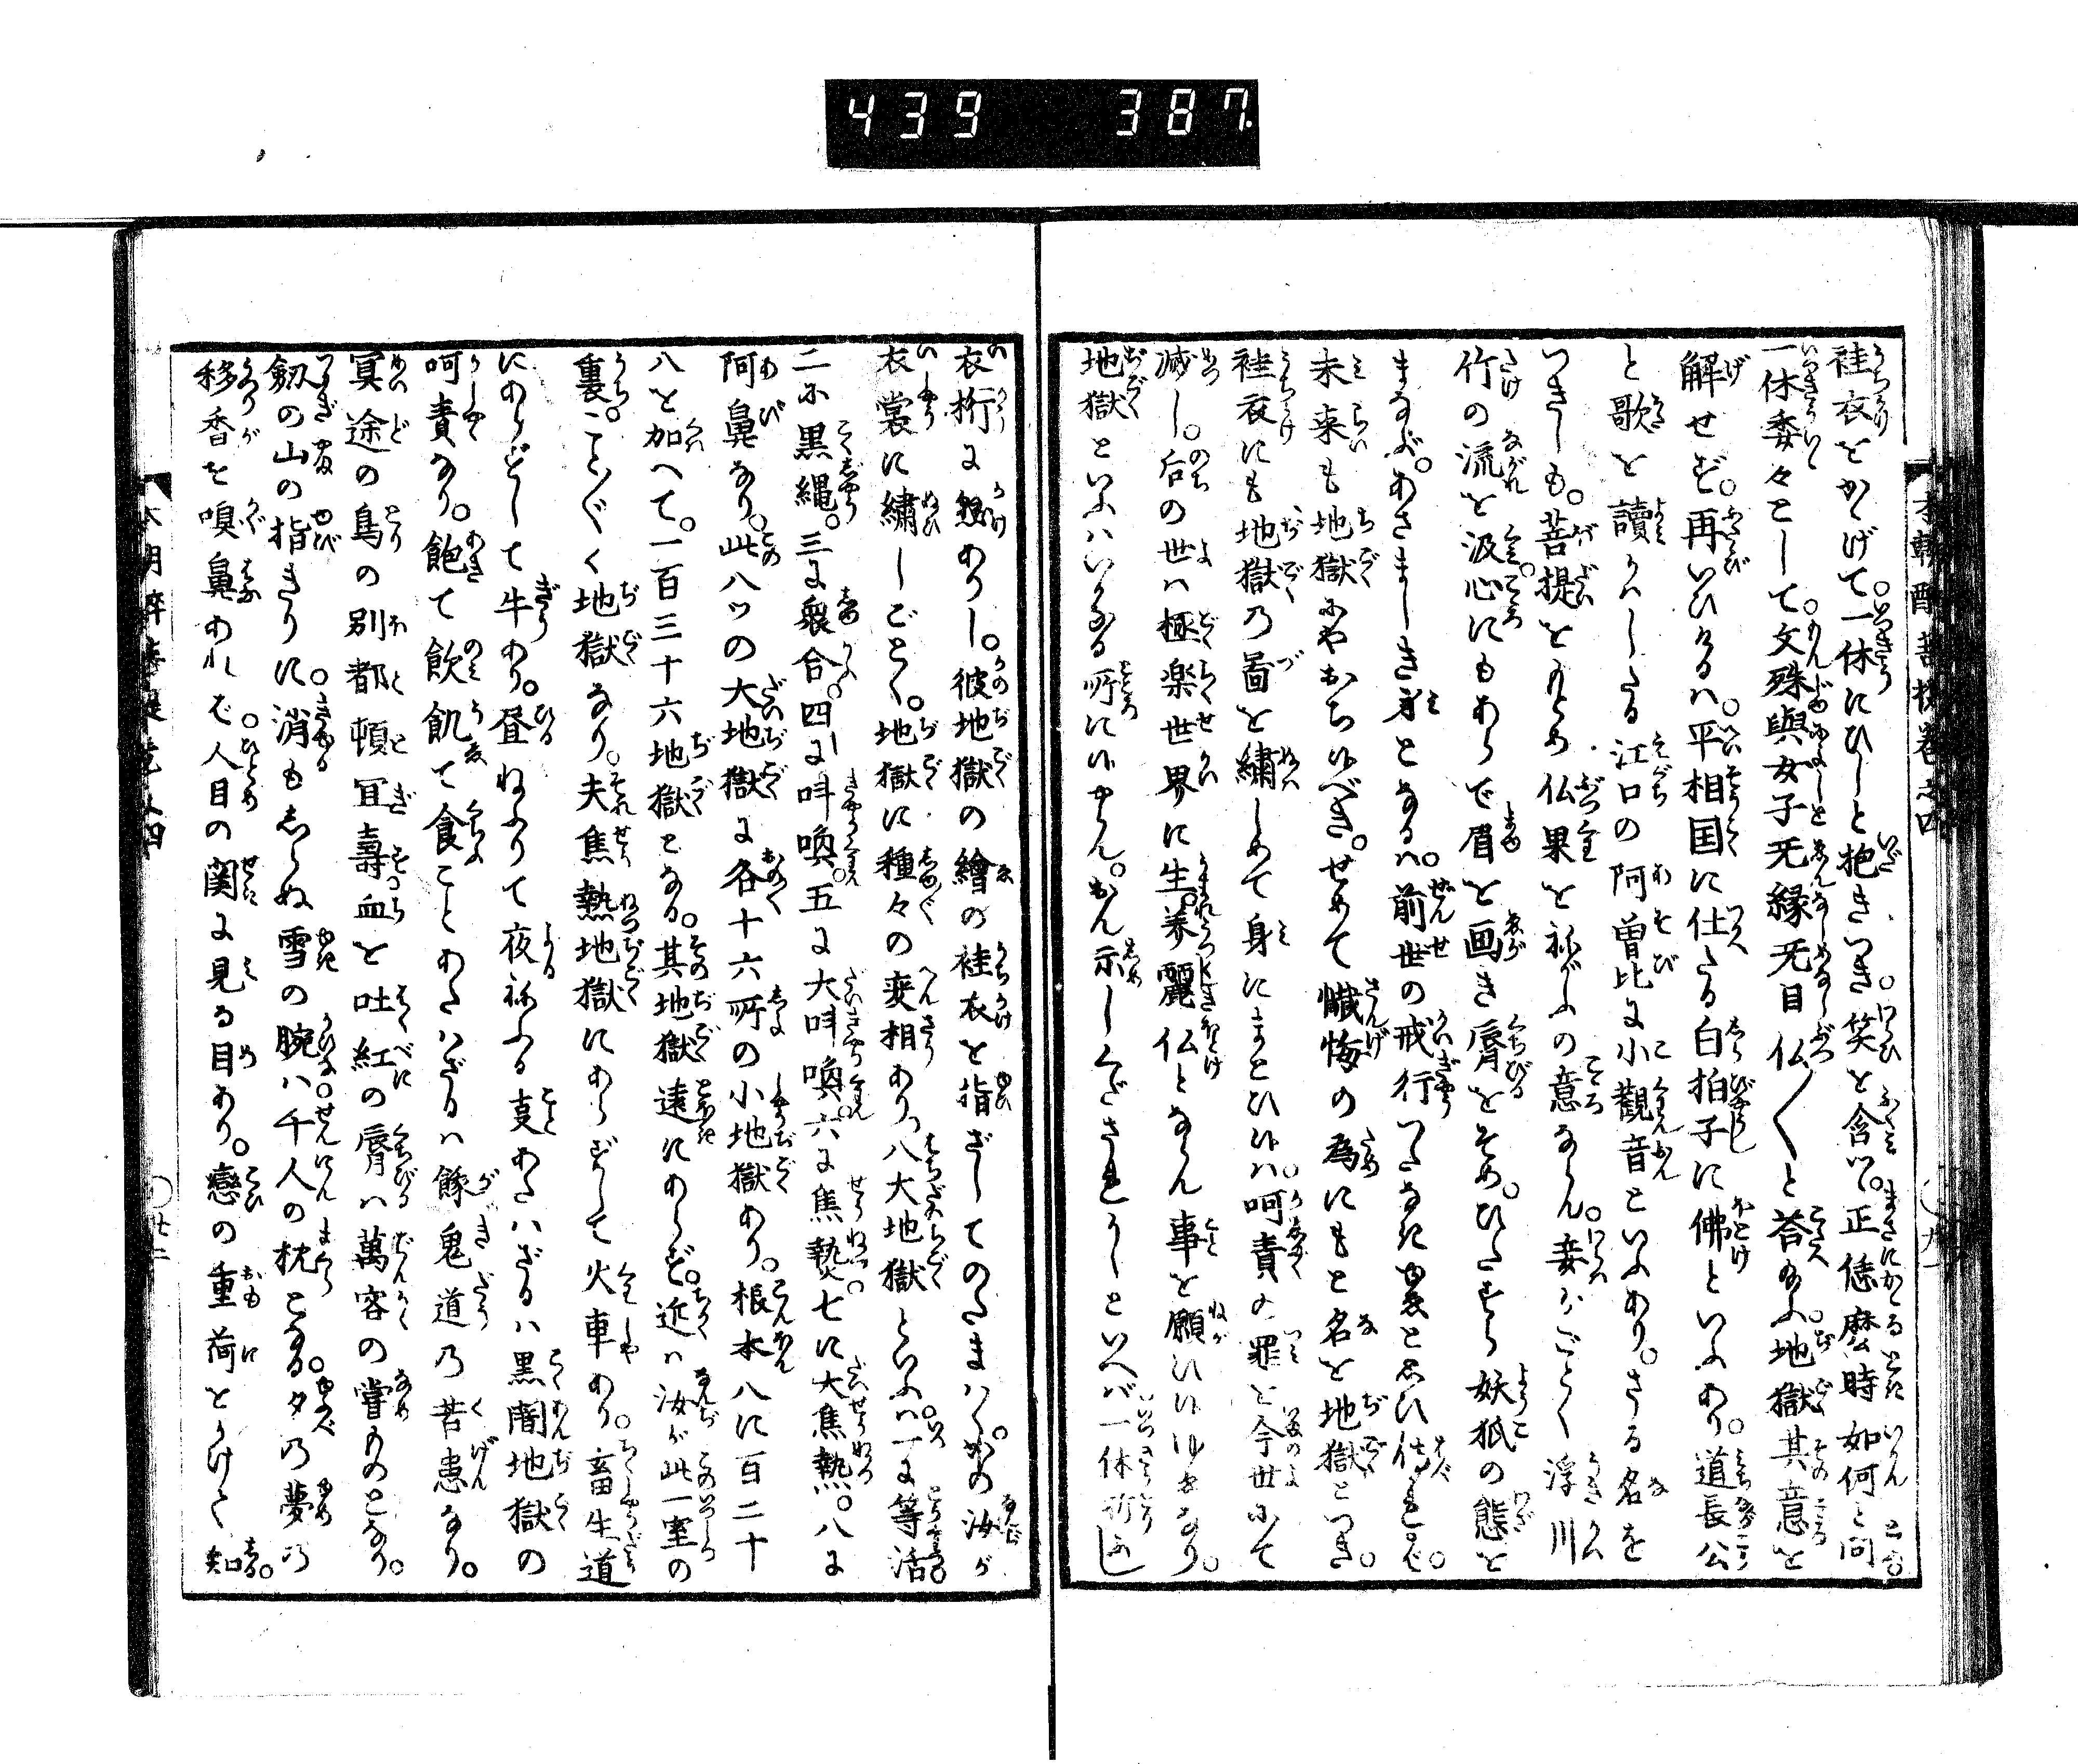 439 387.
本朝酔菩提巻之四
袿衣をかゝげて。一休にひしと抱きつき。笑を含て。正恁麼時如何と問ふ。
一休委々として。文殊與女子无縁无目仏〳〵と答給ふ。地獄其意を
解せず。再いひけるハ。平相国に仕たる白拍子に佛といふあり。道長公
と歌を讀かハしたる江口の阿曽比に小觀音といふあり。さる名を
つきしも。菩提をもとめ仏果を祢がふの意ならん。妾がごとく浮川
竹の流を汲心にもあらで眉を画き脣をそめ。ひたすら妖狐の態を
まなぶ。あさましき身となるハ。前世の戒行つたなきゆゑと思ひ侍れど。
未来も地獄にやおち侍べき。せめて懺悔の為にもと名を地獄とつき。
袿衣にも地獄の啚を繍しめて身にまとひ侍ハ。呵責の罪を今世にて
滅し。后の世ハ極楽世界に生。美麗仏とならん事を願ひ侍ゆゑなり。
地獄といふハいかなる所に侍やらん。おん示しくだされかしといへバ一休打ゑみ
衣桁に懸ありし。彼地獄の繪の袿衣を指ざしてのたまハく。かの汝が
衣裳に繍しごとく。地獄に種々の変相あり。八大地獄といふハ。一に等活
二に黒縄。三に衆合。四に叫喚。五に大叫喚。六に焦熱。七に大焦熱。八に
阿鼻なり。此八ツの大地獄に各十六所の小地獄あり。根本八に百二十
八を加へて。一百三十六地獄となる。其地獄遠にあらず。近ハ汝が此一室の
裏。こと〴〵く地獄なり。夫焦熱地獄にあらずして火車あり。畜生道
にあらずして牛あり。昼ねふりて夜祢ふる事あたハざるハ黒闇地獄の
呵責なり。飽て飲飢て食ことあたハざるハ餓鬼道の苦患なり。
冥途の鳥の別都頓宜壽血を吐紅の脣ハ萬客の嘗ものとなり。
剱の山の指きりに。消もしらぬ雪の腕ハ。千人の枕となる。夕の夢の
移香を嗅鼻あれば。人目の関に見る目あり。戀の重荷をかけて知る。